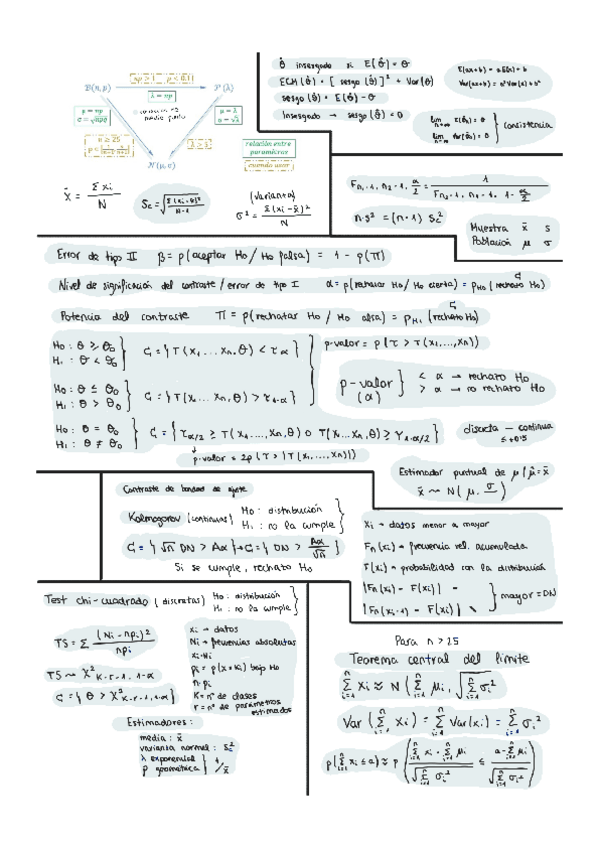 np ≥ 1
B(n, p)
λ = np
P(λ)
μ = np
σ = √npq
μ = λ
σ = √λ
n ≥ 25
λ ≥ 5
N(μ, σ)
relación entre
parámetros
cuando usar
x̄ = Σxi / N
Sc = √(Σ(xi-x̄)² / N-1)
(varianza)
σ² = Σ(xi-x̄)² / N
θ̂ insesgado si E(θ̂) = θ
ECM(θ̂) = [sesgo(θ̂)]² + Var(θ̂)
sesgo(θ̂) = E(θ̂) - θ
Insesgado → sesgo(θ̂) = 0
E(ax+b) = aE(x) + b
Var(ax+b) = a² Var(x)
lim n→∞ E(θ̂n) = θ
lim n→∞ Var(θ̂n) = 0 } consistencia
F n1-1, n2-1, α/2 = 1 / F n2-1, n1-1, 1-α/2
n·s² = (n-1) Sc²
Muestra x̄ s
Población μ σ
Error de tipo II β = p(aceptar Ho/Ho falsa) = 1 - p(π)
Nivel de significación del contraste/error de tipo I α = p(rechazar Ho/Ho cierta) = pHo (rechazo Ho)
Potencia del contraste π = p(rechazar Ho/Ho falsa) = pHi (rechazo Ho)
Ho: θ ≥ θo
Hi: θ < θo } G = {T(x1...xn, θ) < τα}
Ho: θ ≤ θo
Hi: θ > θo } G = {T(x1...xn, θ) > τ1-α}
Ho: θ = θo
Hi: θ ≠ θo } G = {τα/2 ≥ T(x1,...,xn, θ) o T(x1...xn, θ) ≥ τ1-α/2}
p-valor = 2p(τ > |T(x1,...,xn)|)
p-valor = p(τ > T(x1,...,xn))
p-valor (α) } < α → rechazo Ho
> α → no rechazo Ho
discreta — continua
≤ +0'5
Estimador puntual de μ / μ̂ = x̄
x̄ ~ N(μ, σ/
Contraste de bondad de ajuste
Kolmogorov (continuas) Ho: distribución
Hi: no la cumple }
G = {√n DN > Aα} → G = {DN > Aα/√n}
Si se cumple, rechazo Ho
xi → datos menor a mayor
Fn(xi) → frecuencia rel. acumulada
F(xi) → probabilidad con la distribución
|Fn(xi) - F(xi)|
|Fn(xi-1) - F(xi)| } mayor = DN
Test chi-cuadrado (discretas) Ho: distribución
Hi: no la cumple }
TS = Σ (Ni - npi)² / npi
TS ~ χ² K-r-1, 1-α
G = {θ > χ² K-r-1, 1-α}
xi → datos
Ni → frecuencias absolutas
xi·Ni
pi = p(x=xi) bajo Ho
n·pi
K = nº de clases
r = nº de parámetros
estimados
Estimadores:
media: x̄
varianza normal: Sc²
λ exponencial
p geométrica } 1/x̄
Para n > 25
Teorema central del límite
Σ xi ≈ N(Σ μi, √Σ σi²
Var(Σ xi) = Σ Var(xi) = Σ σi²
p(Σ xi ≤ a) ≈ p(Σ xi - Σ μi / √Σ σi² ≤ a - Σ μi / √Σ σi²)